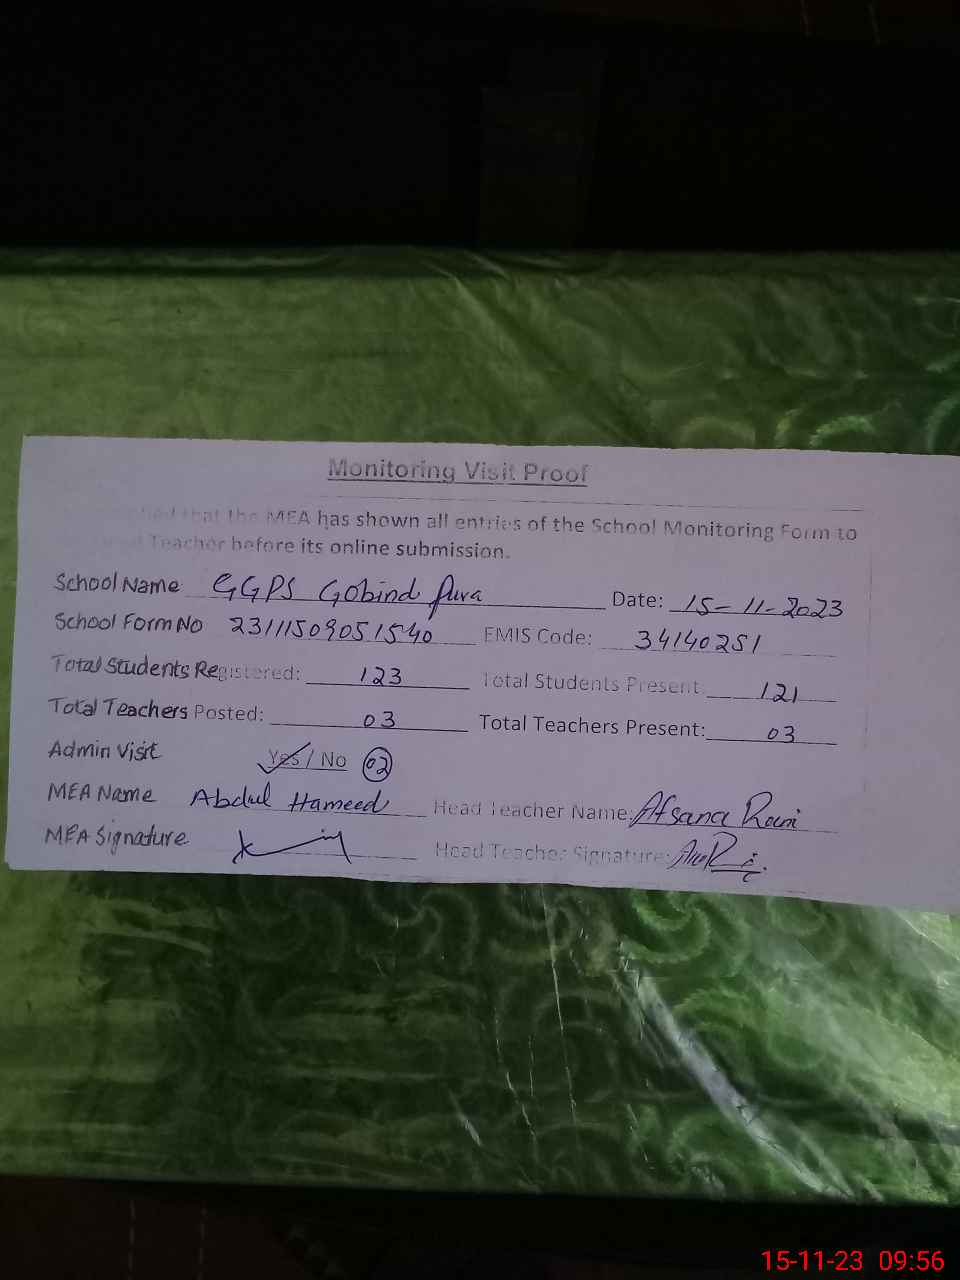 Monitoring Visit Proof
that the MEA has shown all entries of the School Monitoring Form to
Teacher before its online submission.
School Name GGPS Gobind Pura Date: 15-11-2023
School Form No 23111509051540 EMIS Code: 34140251
Total Students Registered: 123 Total Students Present: 121
Total Teachers Posted: 03 Total Teachers Present: 03
Admin Visit Yes / No 02
MEA Name Abdul Hameed Head Teacher Name: Afsana Rani
MEA Signature Head Teacher Signature:
15-11-23 09:56